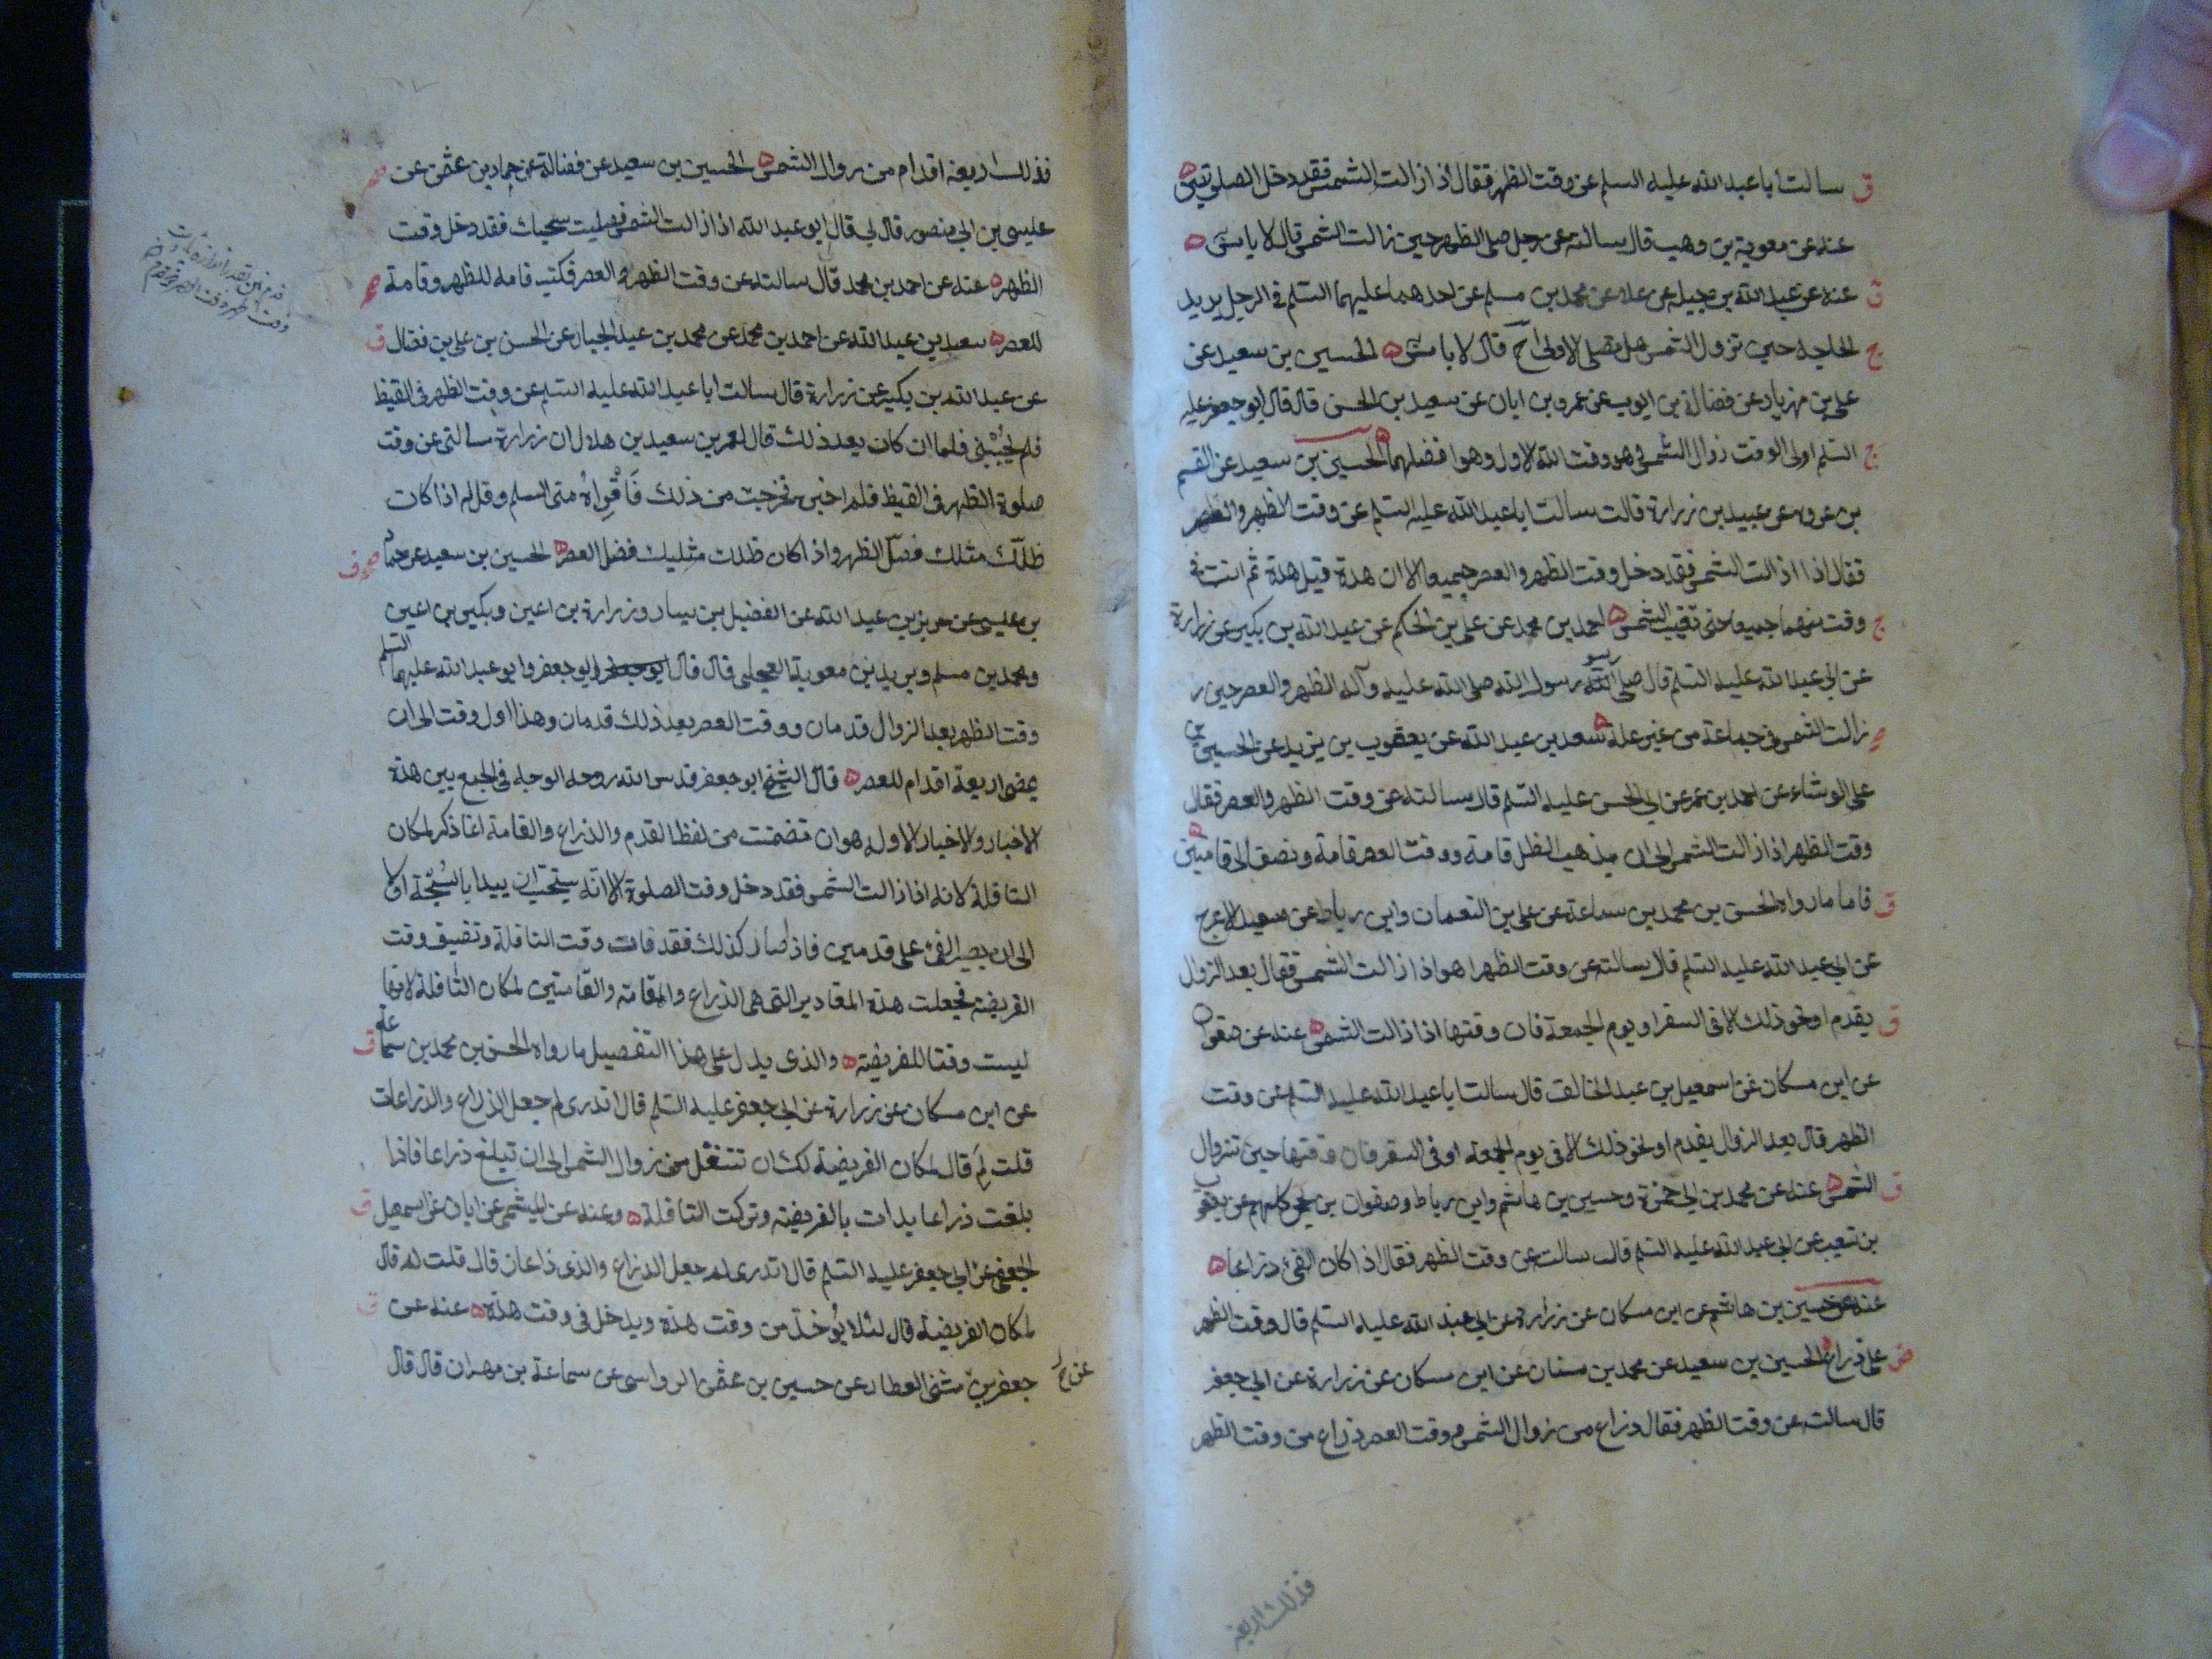 سالت ابا عبد الله عليه السلم عن وقت الظهر فقال اذا زالت الشمس فقد دخل الصلوتين ه
عنه عن معوية بن وهب قال سالته عن رجل صلى الظهر حين زالت الشمس قال لا باس ه
عنه عن عبد الله بن جبيله عن علا عن محمد بن مسلم عن احدهما عليهما السلم فى الرجل يريد
الحاجه حين تزول الشمس هل يصلى الاولى ح قال لا باس ه الحسين بن سعيد عن
على بن مهزيار عن فضالة بن ايوب عن عمرو بن ابان عن سعيد بن الحسن قال قال ابو جعفر عليه
السلم اول الوقت زوال الشمس وهو وقت الله الاول وهو افضلهما ه الحسين بن سعيد عن القسم
بن عروه عن عبيد بن زرارة قالت سالت ابا عبد الله عليه السلم عن وقت الظهر والعصر
فقال اذا اذالت الشمس فقد دخل وقت الظهر والعصر جميعا الا ان هذة قبل هذة ثم انت فى
وقت منهما جميعا حتى تغيب الشمس ه احمد بن محمد عن على بن الحكم عن عبد الله بن بكير عن زرارة
عن ابى عبد الله عليه السلم قال صلى رسول الله صلى الله عليه وآله الظهر والعصر حين
زالت الشمس فى جماعة من غير علة ه سعد بن عبد الله عن يعقوب بن يزيد عن الحسين بن
على الوشاء عن احمد بن عمر عن ابى الحسن عليه السلم قال سالته عن وقت الظهر والعصر فقال
وقت الظهر اذا زالت الشمس الى ان يذهب الظل قامة ووقت العصر قامة ونصف الى قامتين ه
فاما مارواه الحسن بن محمد بن سماعة عن على بن النعمان وابن رباط عن سعيد الاعرج
عن ابى عبد الله عليه السلم قال سالته عن وقت الظهر اهو اذا زالت الشمس فقال بعد الزوال
بقدم او نحو ذلك الا فى السفر او يوم الجمعة فان وقتها اذا زالت الشمس ه عنه عن صفوان
عن ابن مسكان عن اسمعيل بن عبد الخالق قال سالت ابا عبد الله عليه السلم عن وقت
الظهر قال بعد الزوال بقدم او نحو ذلك الا فى يوم الجمعة او فى السفر فان وقتها حين تزوال
الشمس ه عنه عن محمد بن ابى حمزة وحسين بن هاشم وابن رباط وصفوان بن يحيى كلهم عن يعقوب
بن شعيب عن ابى عبد الله عليه السلم قال سالت عن وقت الظهر فقال اذا كان الفىء ذراعا ه
عنه عن حسين بن هاشم عن ابن مسكان عن زرارة عن ابى عبد الله عليه السلم قال وقت الظهر
على ذراع ه الحسين بن سعيد عن محمد بن سنان عن ابن مسكان عن زرارة عن ابى جعفر
قال سالت عن وقت الظهر فقال ذراع من زوال الشمس ووقت العصر ذراع من وقت الظهر
فذلك اربعة
فذلك اربعة اقدام من زوال الشمس ه الحسين بن سعيد عن فضالة عن حماد بن عثمن عن
عليسى بن ابى منصور قال لى قال ابو عبد الله اذا زالت الشمس فصليت سبحتك فقد دخل وقت
الظهر ه عنه عن احمد بن محمد قال سالته عن وقت الظهر والعصر فكتب قامه للظهر وقامة
للعصر ه سعد بن عبد الله عن احمد بن محمد عن محمد بن عبد الجبار عن الحسن بن على بن فضال
عن عبد الله بن بكير عن زرارة قال سالت ابا عبد الله عليه السلم عن وقت الظهر فى القيظ
فلم يجبنى فلما ان كان بعد ذلك قال لعمر بن سعيد بن هلال ان زرارة سالنى عن وقت
صلوة الظهر فى القيظ فلم اخبره فخرجت من ذلك فاقراه منى السلم وقل له اذا كان
ظلك مثلك فصل الظهر واذا كان ظلك مثليك فصل العصر ه الحسين بن سعيد عن حماد
بن عليسى عن حريز بن عبد الله عن الفضيل بن يسار وزرارة بن اعين وبكير بن اعين
ومحمد بن مسلم وبريد بن معوية العجلى قال قال ابو جعفر وابو عبد الله عليهما السلم
وقت الظهر بعد الزوال قدمان ووقت العصر بعد ذلك قدمان وهذا اول وقت الى ان
يمضى اربعة اقدام للعصر ه قال الشيخ ابو جعفر قدس الله روحه الوجه فى الجمع بين هذه
الاخبار والاخبار الاوله هو ان تضمنت من لفظ القدم والذراع والقامة انما ذكر لمكان
النافلة لانه اذا زالت الشمس فقد دخل وقت الصلوة الا انه يستحب ان يبدا بالسبحة اولا
الى ان يصير الفىء على قدمين فاذا صار كذلك فقد فات وقت النافلة وتضيق وقت
الفريضة فجعلت هذة المقادير التى هى الذراع والقامة والقامتين لمكان النافلة لانها
ليست وقتا للفريضة ه والذى يدل على هذا التفصيل ما رواه الحسن بن محمد بن سماعة
عن ابن مسكان عن زرارة عن ابى جعفر عليه السلم قال اتدرى لم جعل الذراع والذراعان
قلت لم قال لمكان الفريضة لك ان تتنفل من زوال الشمس الى ان تبلغ ذراعا فاذا
بلغت ذراعا بدات بالفريضة وتركت النافلة ه وعنه عن الميثمى عن ابان عن اسمعيل
الجعفى عن ابى جعفر عليه السلم قال اتدرى لم جعل الذراع والذى ذاعان قال قلت لم قال
لمكان الفريضة قال لئلا يؤخذ من وقت هذة ويدخل فى وقت هذة ه عنه عن
جعفر بن مثنى العطار عن حسين بن عثمن الرواسى عن سماعة بن مهران قال قال